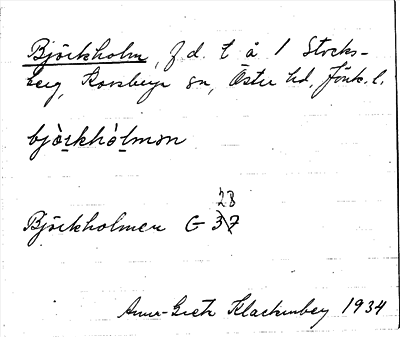 Björkholm, f.d. t å 1 Stocks-
berg, Korsberga sn, Östra hd, Jönk. l.
bjòrkhòlmǝn
28
Björkholmen G 37
Anna-Greta Klackenberg 1934